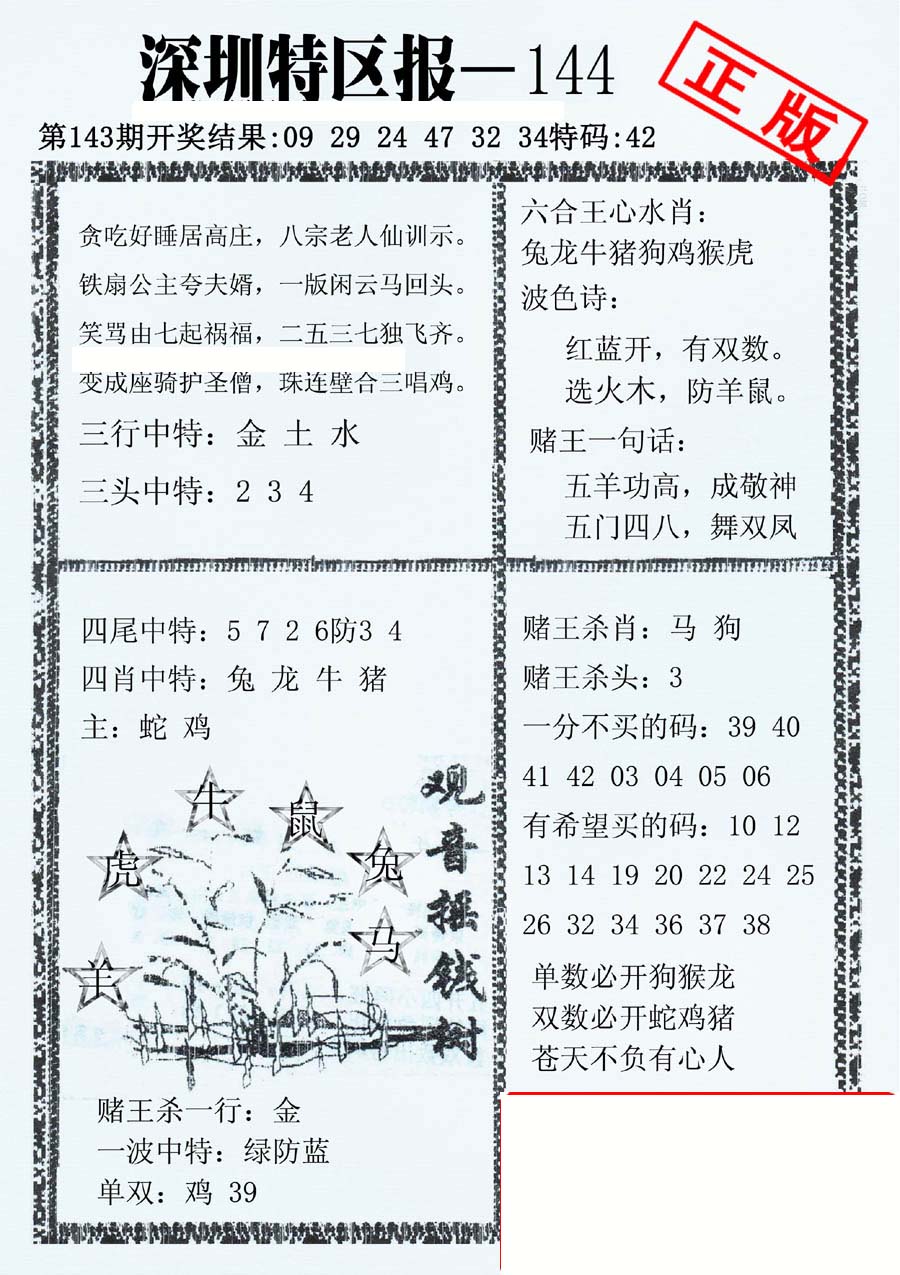 深圳特区报—144
正版
第143期开奖结果:09 29 24 47 32 34特码:42
贪吃好睡居高庄，八宗老人仙训示。
铁扇公主夸夫婿，一版闲云马回头。
笑骂由七起祸福，二五三七独飞齐。
变成座骑护圣僧，珠连壁合三唱鸡。
三行中特：金 土 水
三头中特：2 3 4
六合王心水肖：
兔龙牛猪狗鸡猴虎
波色诗：
红蓝开，有双数。
选火木，防羊鼠。
赌王一句话：
五羊功高，成敬神
五门四八，舞双凤
四尾中特：5 7 2 6防3 4
四肖中特：兔 龙 牛 猪
主：蛇 鸡
牛
鼠
虎
兔
马
羊
观音摇钱树
赌王杀一行：金
一波中特：绿防蓝
单双：鸡 39
赌王杀肖：马 狗
赌王杀头：3
一分不买的码：39 40
41 42 03 04 05 06
有希望买的码：10 12
13 14 19 20 22 24 25
26 32 34 36 37 38
单数必开狗猴龙
双数必开蛇鸡猪
苍天不负有心人